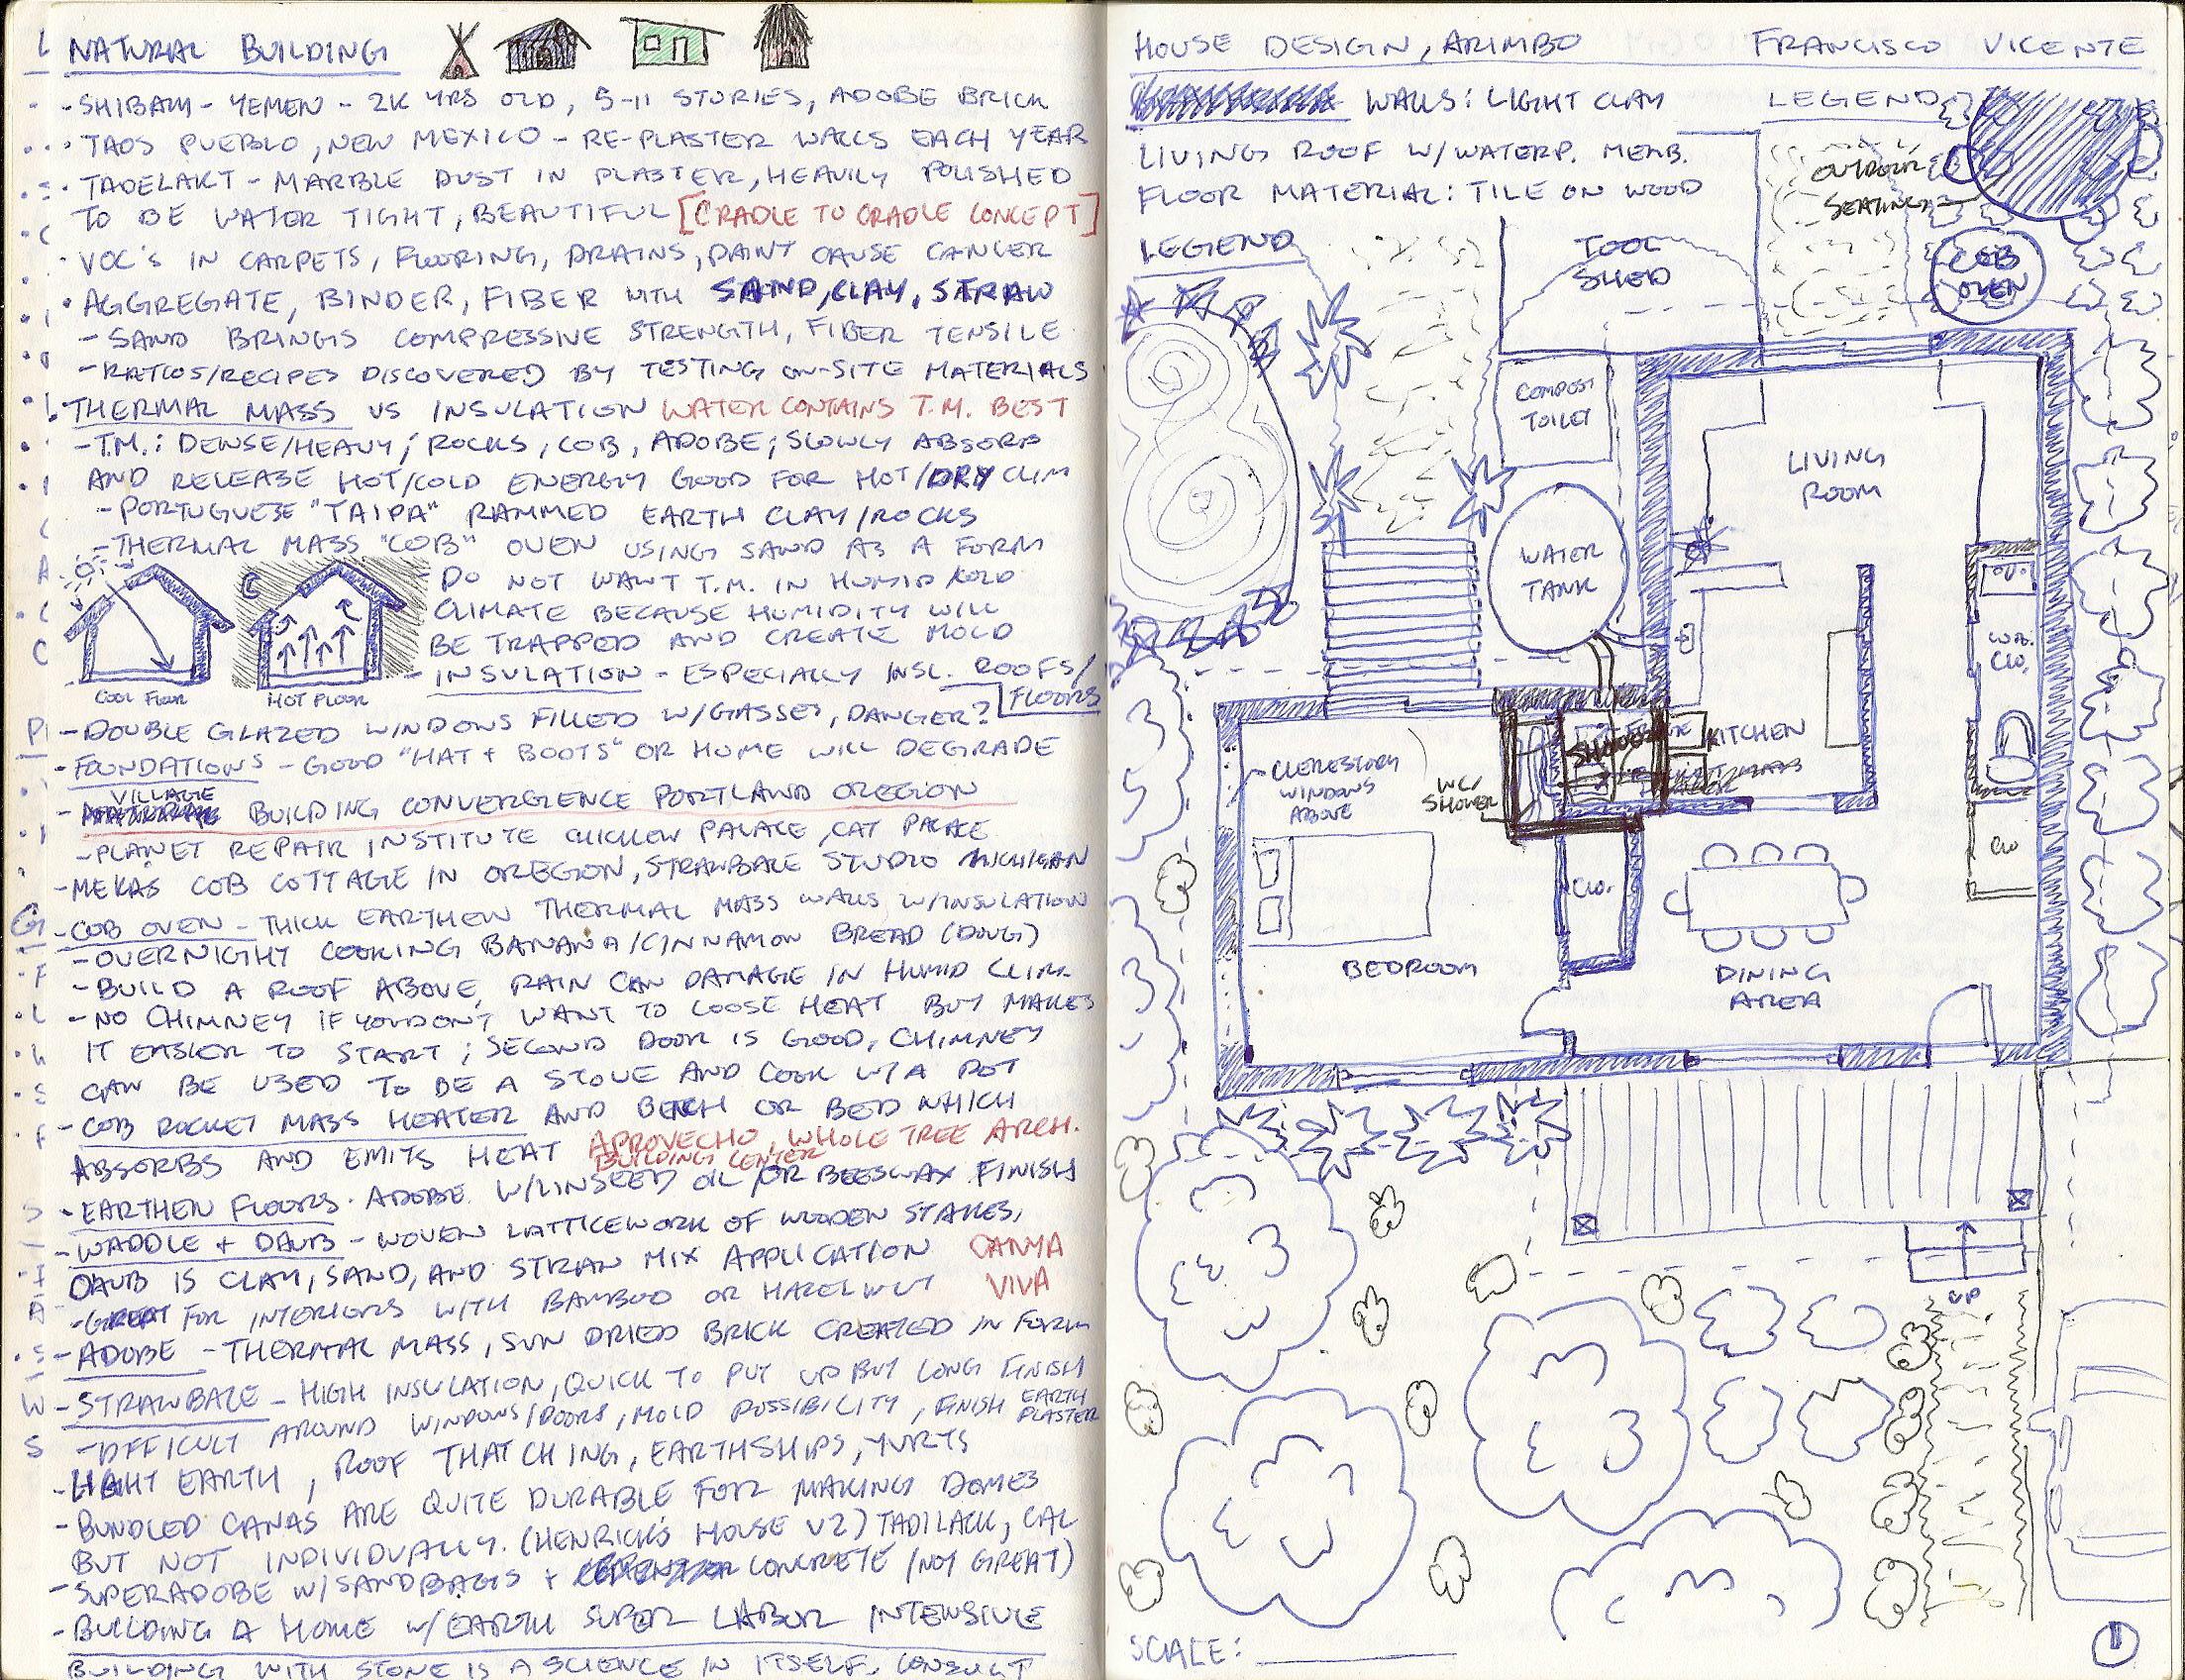 NATURAL BUILDING
- SHIBAM - YEMEN - 2K YRS OLD, 5-11 STORIES, ADOBE BRICK
· TAOS PUEBLO, NEW MEXICO - RE-PLASTER WALLS EACH YEAR
· TADELAKT - MARBLE DUST IN PLASTER, HEAVILY POLISHED
TO BE WATER TIGHT, BEAUTIFUL [CRADLE TO CRADLE CONCEPT]
· VOC'S IN CARPETS, FLOORING, DRAINS, PAINT CAUSE CANCER
· AGGREGATE, BINDER, FIBER WITH SAND, CLAY, STRAW
- SAND BRINGS COMPRESSIVE STRENGTH, FIBER TENSILE
- RATIOS/RECIPES DISCOVERED BY TESTING ON-SITE MATERIALS
· THERMAL MASS VS INSULATION WATER CONTAINS T.M. BEST
- T.M.: DENSE/HEAVY; ROCKS, COB, ADOBE; SLOWLY ABSORB
AND RELEASE HOT/COLD ENERGY GOOD FOR HOT/DRY CLIM
- PORTUGUESE "TAIPA" RAMMED EARTH CLAY/ROCKS
- THERMAL MASS "COB" OVEN USING SAND AS A FORM
- DO NOT WANT T.M. IN HUMID/COLD
CLIMATE BECAUSE HUMIDITY WILL
BE TRAPPED AND CREATE MOLD
COOL FLOOR
HOT FLOOR
- INSULATION - ESPECIALLY INSL. ROOFS/
FLOORS
- DOUBLE GLAZED WINDOWS FILLED W/GASSES, DANGER?
- FOUNDATIONS - GOOD "HAT + BOOTS" OR HOME WILL DEGRADE
- VILLAGE BUILDING CONVERGENCE PORTLAND OREGON
- PLANET REPAIR INSTITUTE CHICKEN PALACE, CAT PALACE
- MEKA'S COB COTTAGE IN OREGON, STRAWBALE STUDIO MICHIGAN
- COB OVEN - THICK EARTHEN THERMAL MASS WALLS W/INSULATION
- OVERNIGHT COOKING BANANA/CINNAMON BREAD (DOUG)
- BUILD A ROOF ABOVE, RAIN CAN DAMAGE IN HUMID CLIM.
- NO CHIMNEY IF YOU DON'T WANT TO LOOSE HEAT BUT MAKES
IT EASIER TO START; SECOND DOOR IS GOOD, CHIMNEY
CAN BE USED TO BE A STOVE AND COOK W/A POT
- COB ROCKET MASS HEATER AND BENCH OR BED WHICH
ABSORBS AND EMITS HEAT APROVECHO, WHOLE TREE ARCH.
BUILDING CENTER
- EARTHEN FLOORS · ADOBE W/LINSEED OIL OR BEESWAX FINISH
- WADDLE + DAUB - WOVEN LATTICEWORK OF WOODEN STAKES,
DAUB IS CLAY, SAND, AND STRAW MIX APPLICATION CANYA
VIVA
- GREAT FOR INTERIORS WITH BAMBOO OR HAZELNUT
- ADOBE - THERMAL MASS, SUN DRIED BRICK CREATED IN FORM
- STRAWBALE - HIGH INSULATION, QUICK TO PUT UP BUT LONG FINISH
- DIFFICULT AROUND WINDOWS/DOORS, MOLD POSSIBILITY, FINISH EARTH PLASTER
- LIGHT EARTH, ROOF THATCHING, EARTHSHIPS, YURTS
- BUNDLED CANAS ARE QUITE DURABLE FOR MAKING DOMES
BUT NOT INDIVIDUALLY. (HENRICK'S HOUSE V2) TADILACK, CAL
- SUPERADOBE W/SANDBAGS + CONCRETE (NOT GREAT)
- BUILDING A HOME W/EARTH SUPER LABOR INTENSIVE
BUILDING WITH STONE IS A SCIENCE IN ITSELF, CONSULT
HOUSE DESIGN, ARIMBO FRANCISCO VICENTE
WALLS: LIGHT CLAY
LEGEND
LIVING ROOF W/WATERP. MEMB.
FLOOR MATERIAL: TILE ON WOOD
LEGEND
OUTDOOR
SEATING
TOOL
SHED
COB
OVEN
COMPOST
TOILET
LIVING
ROOM
WATER
TANK
OV.
CLO.
KITCHEN
CLERESTORY
WINDOWS
ABOVE
WC/
SHOWER
CLO
CLO.
BEDROOM
DINING
AREA
UP
SCALE: